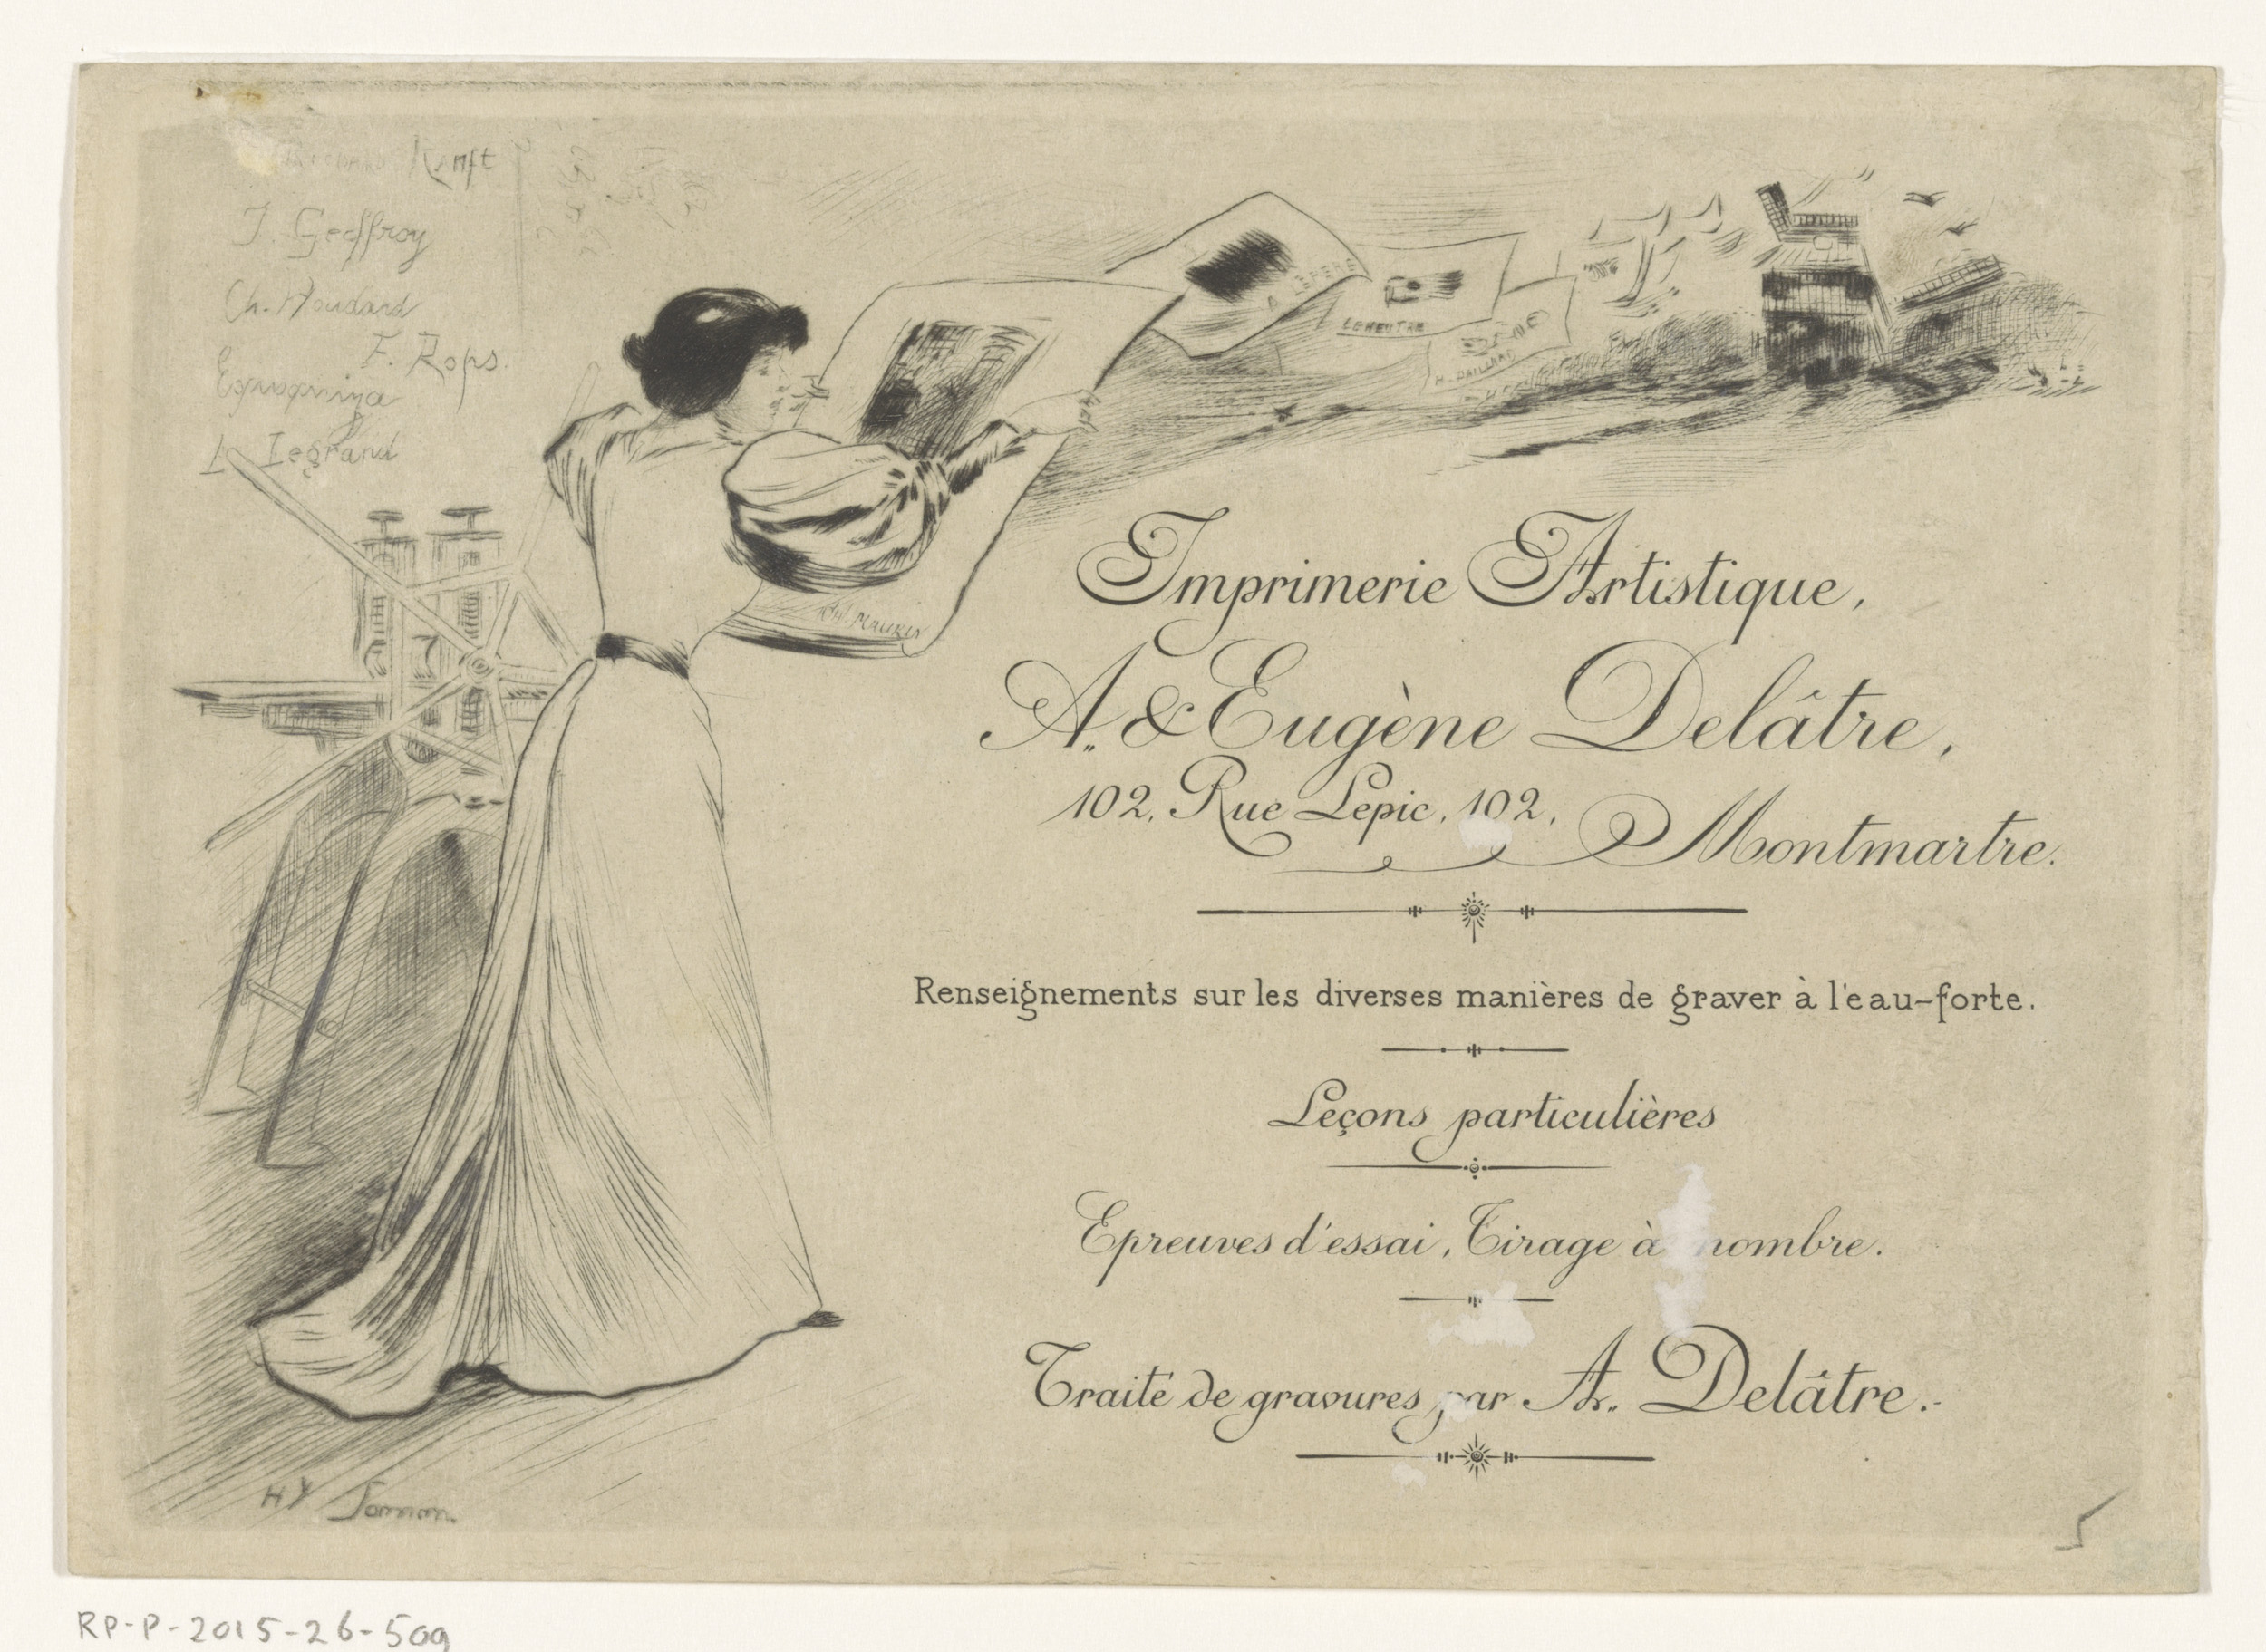 Runft
J. Geoffroy
Ch. Houdard
F. Rops.
L. Legrand
A LEPERE
LEHEUTRE
H. PAILLARD
MAURIN
Imprimerie Artistique,
A. & Eugène Delâtre,
102, Rue Lepic, 102,
Montmartre.
Renseignements sur les diverses manières de graver à l'eau-forte.
Leçons particulières
Epreuves d'essai, Tirage à nombre.
Traité de gravures par A. Delâtre.
Hy Somm
5
RP-P-2015-26-509